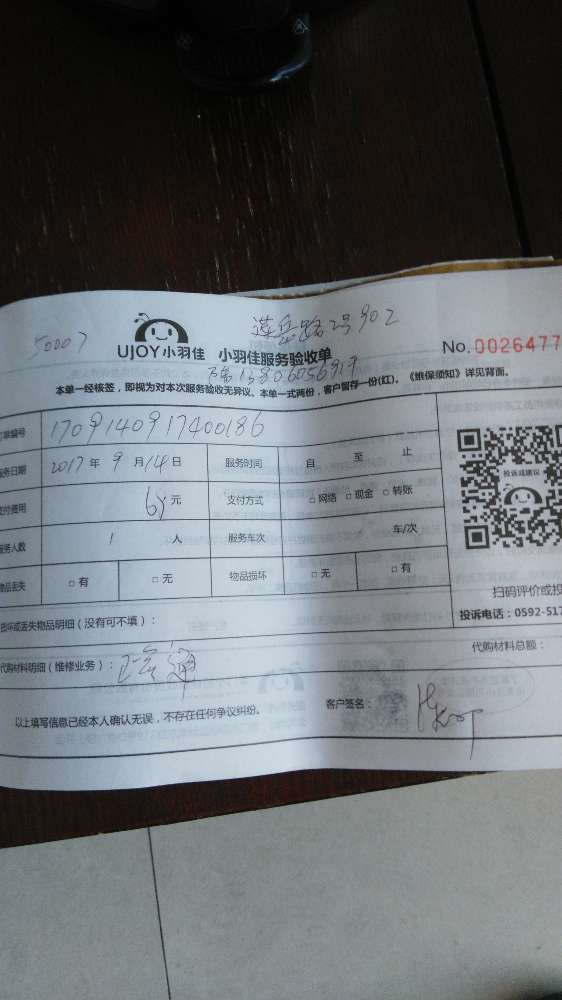 莲岳路2号902
50007
UJOY小羽佳 小羽佳服务验收单 No.0026477
13806056917
本单一经核签，即视为对本次服务验收无异议。本单一式两份，客户留存一份(红)。《维保须知》详见背面。
订单编号 1709140917400186
服务日期 2017年9月14日 服务时间 自 至 止
支付费用 元 支付方式 □网络 □现金 □转账
服务人数 1 人 服务车次 车/次
物品丢失 □有 □无 物品损坏 □无 □有
投诉或建议
扫码评价或投
投诉电话：0592-517
损坏或丢失物品明细（没有可不填）：
代购材料明细（维修业务）： 代购材料总额：
以上填写信息已经本人确认无误，不存在任何争议纠纷。 客户签名：